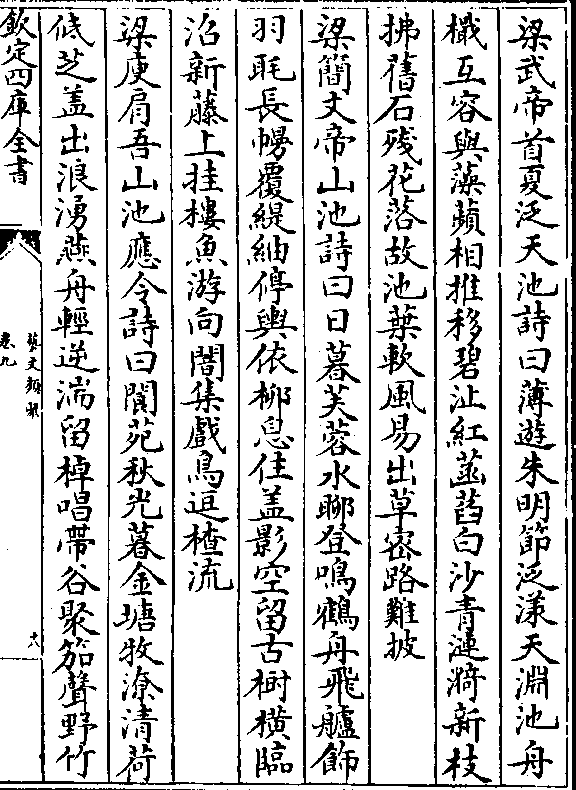 梁武帝首夏泛天池詩曰薄遊朱明節泛漾天淵池舟
檝互容與藻蘋相推移碧沚紅菡萏白沙青漣漪新枝
拂舊石殘花落故池葉軟風易出草密路難披
梁簡文帝山池詩曰日暮芙蓉水聊登鳴鶴舟飛艫飾
羽毦長幔覆緹紬停輿依栁息住盖影空留古樹横臨
沼新藤上挂樓魚游向闇集戲鳥逗楂流
梁庾肩吾山池應令詩曰閬苑秋光暮金塘牧潦清荷
低芝盖出浪湧燕舟輕逆湍留棹唱帶谷聚笳聲野竹
欽定四庫全書
藝文類聚
卷九
十八